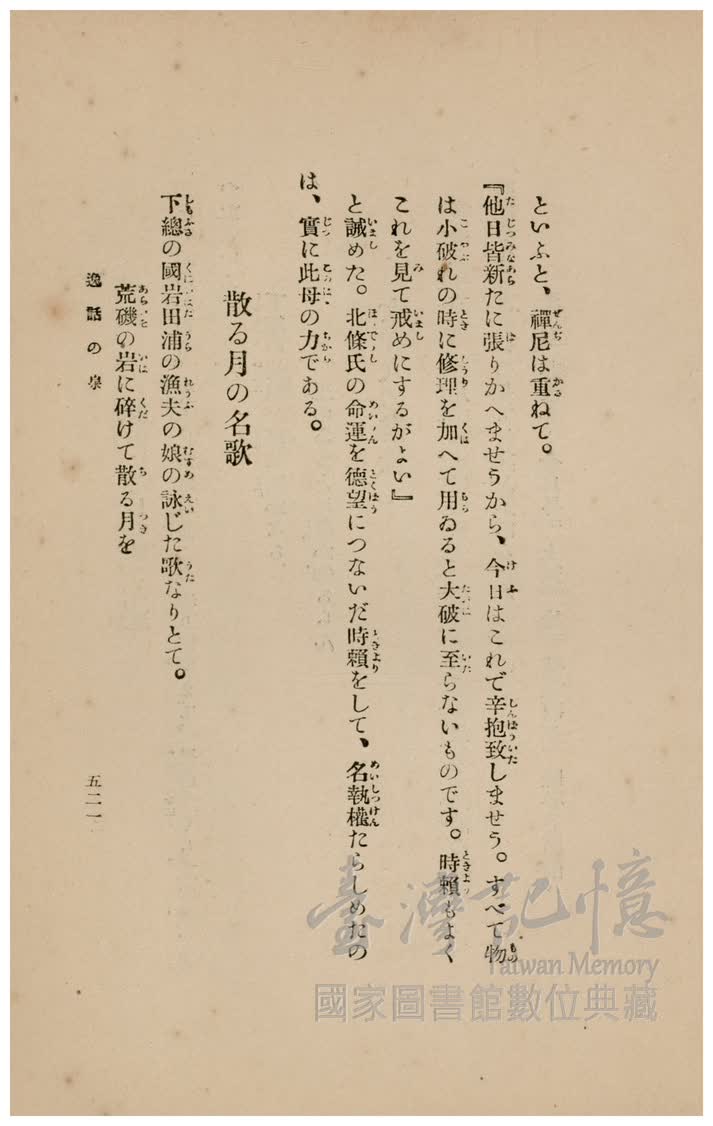 といふと、禪尼は重ねて。
『他日皆新たに張りかへませうから、今日はこれで辛抱致しませう。すべて物
は小破れの時に修理を加へて用ゐると大破に至らないものです。時賴もよく
これを見て戒めにするがよい』
と誡めた。北條氏の命運を德望につないだ時賴をして、名執權たらしめたの
は、實に此母の力である。
散る月の名歌
下總の國岩田浦の漁夫の娘の詠じた歌なりとて。
荒磯の岩に碎けて散る月を
逸話の泉
五二一
臺灣記憶
Taiwan Memory
國家圖書館數位典藏